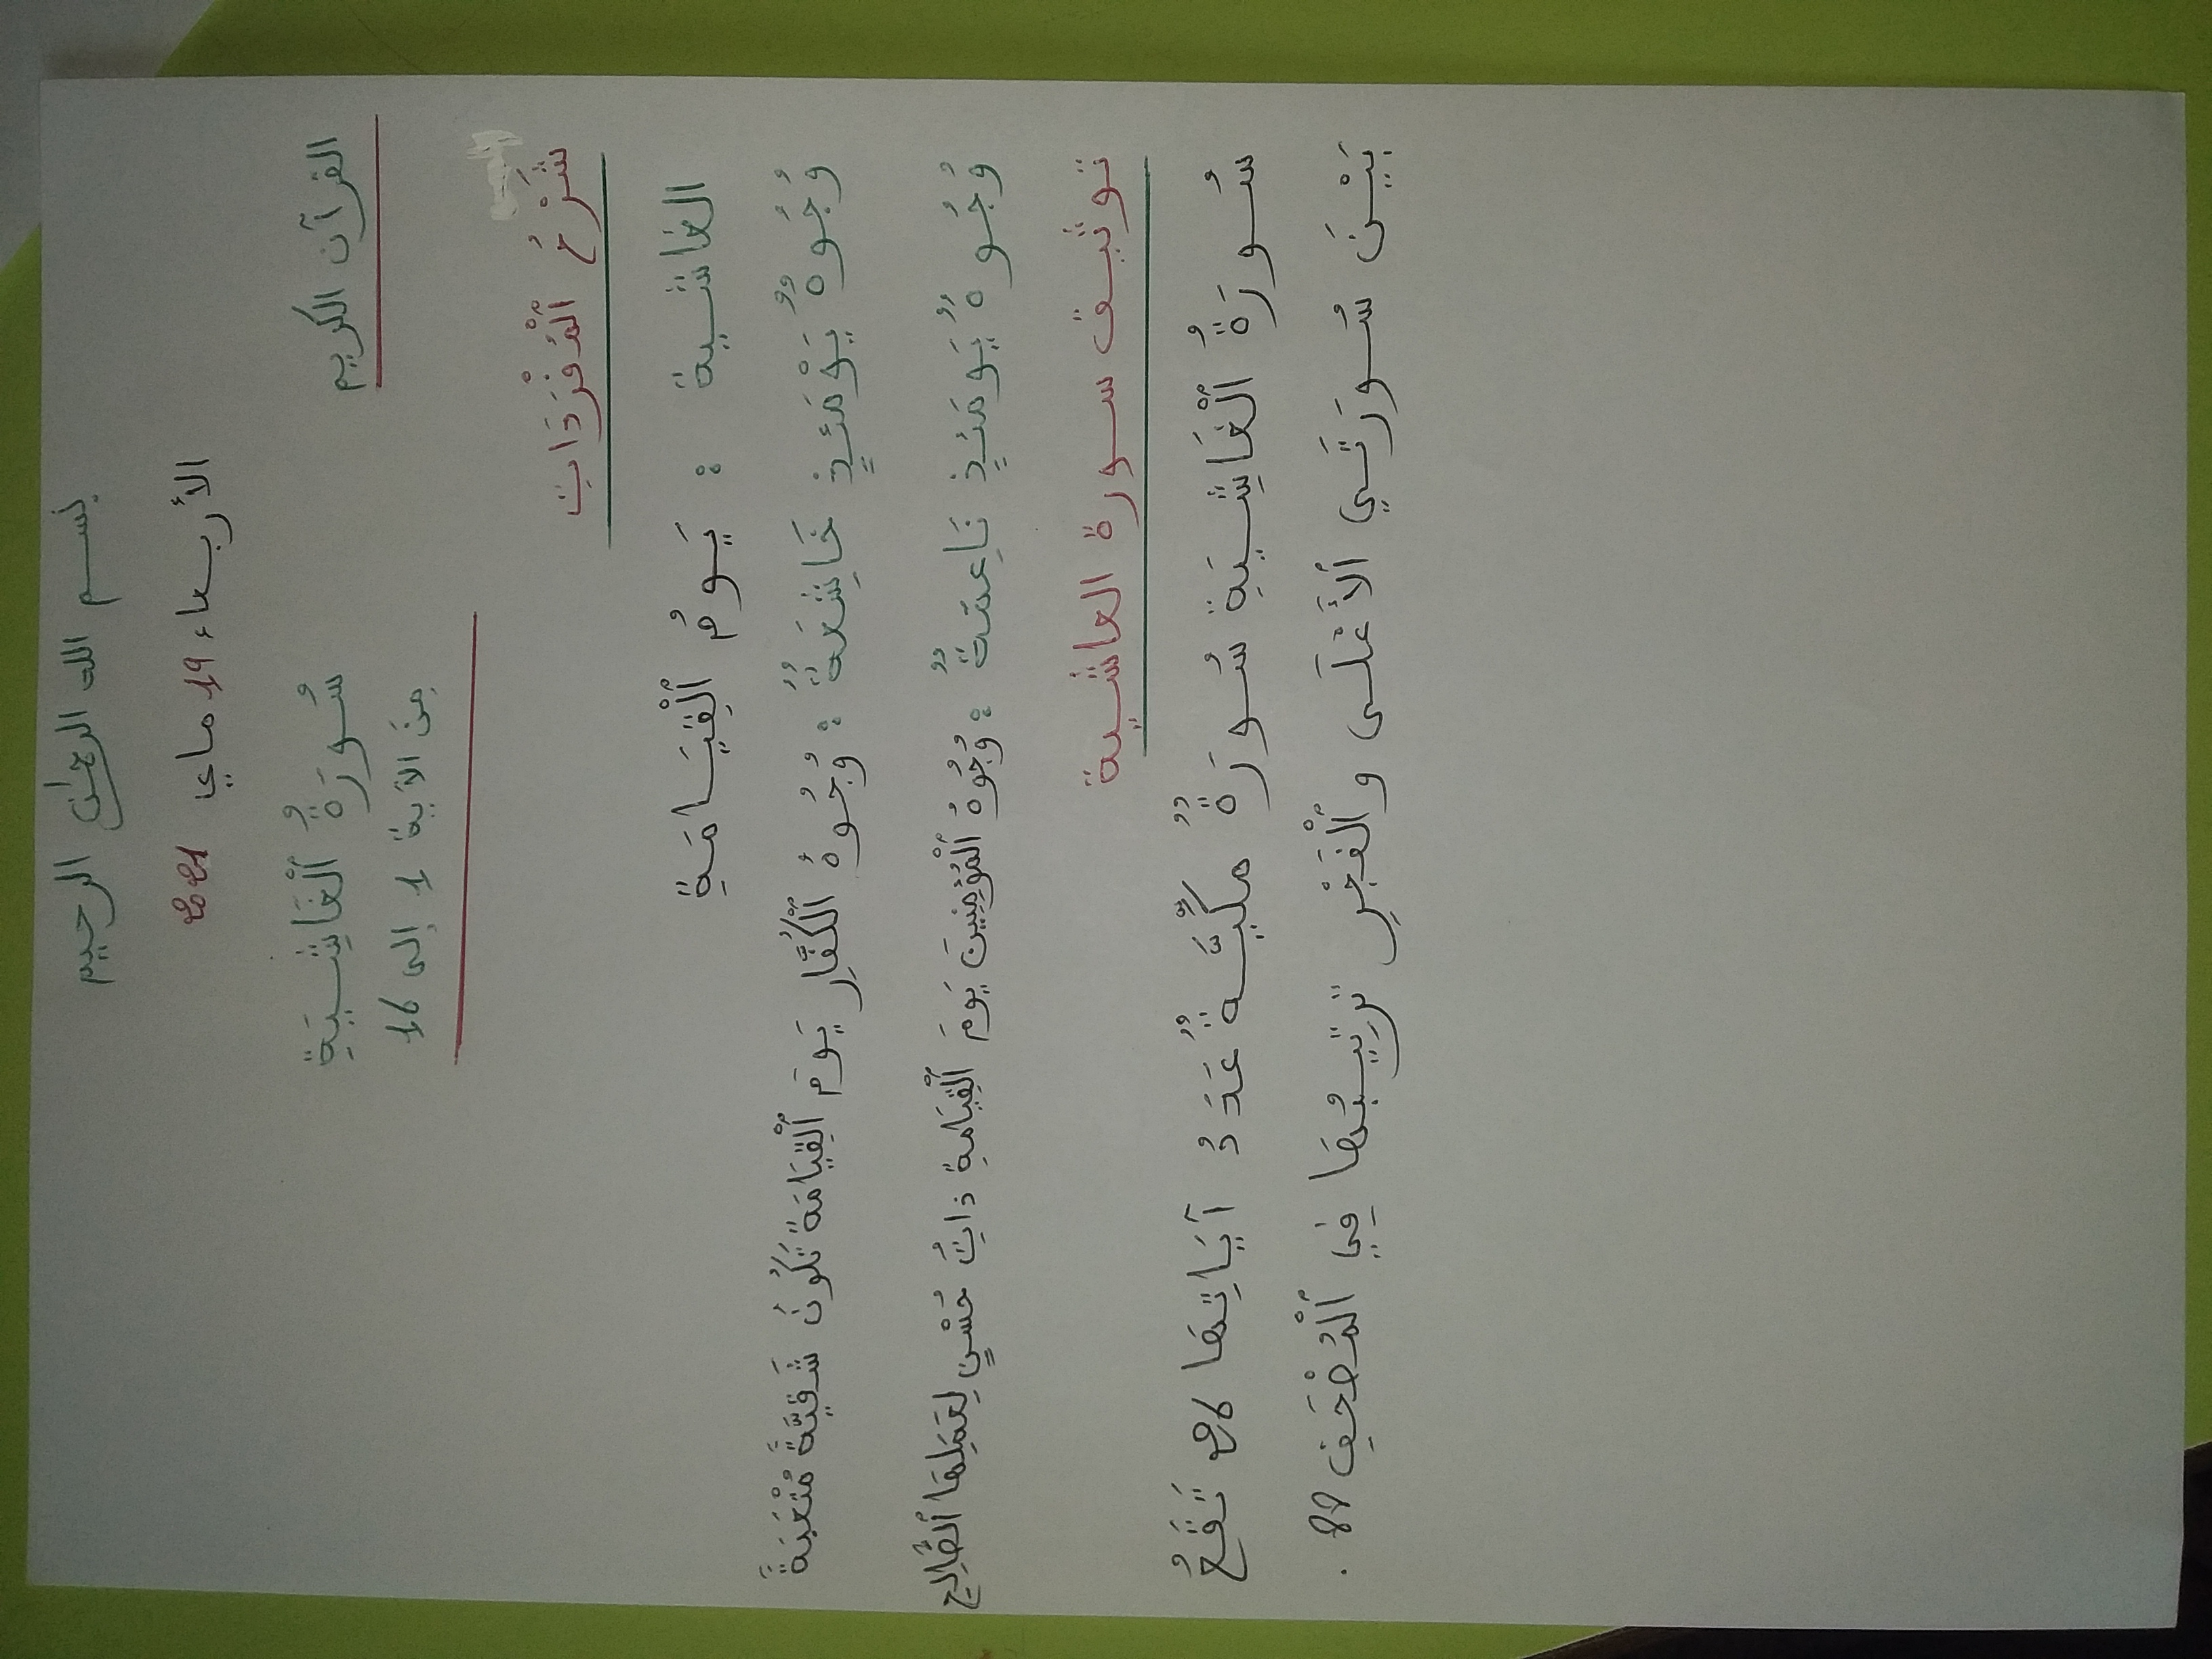 بسم الله الرحمٰن الرحيم
الأربعاء 19 ماي 2021
القرآن الكريم
سُورَةُ ٱلْغَاشِيَةِ
مِنَ الآية 1 إلى 16
شَرْحُ ٱلْمُفْرَدَاتِ
الغاشية : يَومُ ٱلْقِيَامَةِ
وُجُوهٌ يَوْمَئِذٍ خَاشِعَةٌ : وُجُوهُ ٱلْكُفَّارِ يَومَ ٱلْقِيَامَة تَكُونُ شَقيَّةً مُتْعَبَةً
وُجُوهٌ يَومَئذٍ نَاعِمَةٌ : وُجُوهُ ٱلْمُؤمِنِينَ يَومَ ٱلْقِيَامةِ ذاتُ حُسْنٍ لِعَمَلِهَا ٱلصَّالِحِ
توثيق سورة الغاشية
سُورَةُ ٱلْغَاشِيَةِ سُورَةٌ مكِّيَّةٌ عَدَدُ آيَاتِهَا 26 تَقَعُ
بَيْنَ سُورَتَي ٱلأَعْلَى وٱلْفَجْرِ ترتِيبُهَا فِي ٱلْمُصْحَفِ 88 .